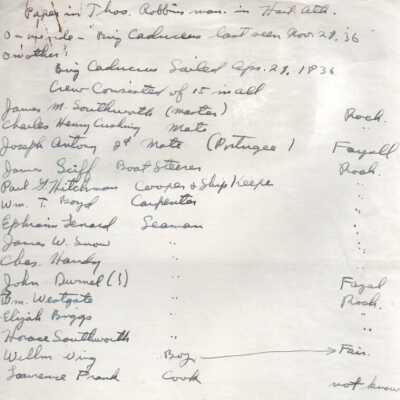 Paper in Thos. Robbins man. in Hart. Ath.
On inside - "Brig Caduceus last seen Nov. 29, '36
Another:
Brig Caduceus Sailed Aps. 29, 1836
Crew Consisted of 15 in all
James M. Southworth (master) Roch.
Charles Henry Cushing Mate "
Joseph Antony 2d Mate (Portugee) Fayall
James Seiff Boat Steerer Roch.
Paul G. Hitchman Cooper & Ship Keeper "
Wm. T. Boyd Carpenter "
Ephraim Tenard Seaman "
James W. Snow " "
Chas. Handy " "
John Durnel (?) " Fayal
Wm. Westgate " Roch.
Elijah Biggs " "
Horace Southworth " "
Willm Wing Boy Fair.
Lawrence Prank Cook not know